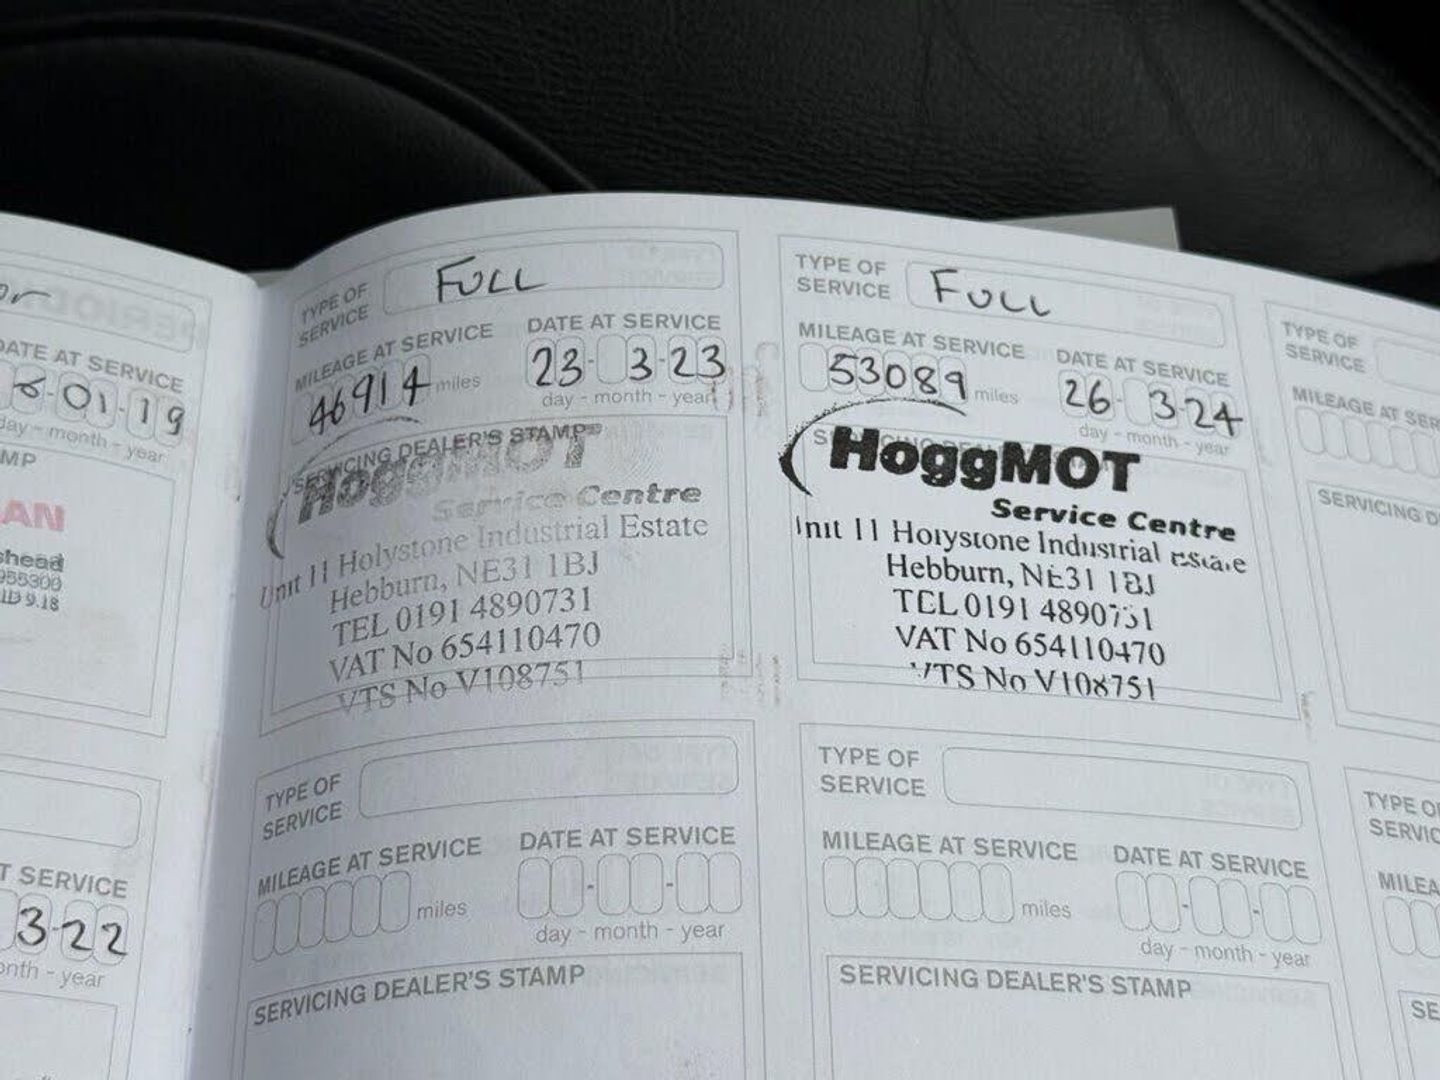 or
DATE AT SERVICE
6-01-19
day - month - year
MP
AN
shead
955300
ID 9.18
T SERVICE
3-22
onth - year
TYPE OF
SERVICE
FULL
MILEAGE AT SERVICE
46914 miles
DATE AT SERVICE
23-3-23
day - month - year
SERVICING DEALER'S STAMP
HoggMOT
Service Centre
Unit 11 Holystone Industrial Estate
Hebburn, NE31 1BJ
TEL 0191 4890731
VAT No 654110470
VTS No V108751
TYPE OF
SERVICE
MILEAGE AT SERVICE
miles
DATE AT SERVICE
day - month - year
SERVICING DEALER'S STAMP
TYPE OF
SERVICE
FULL
MILEAGE AT SERVICE
53089 miles
DATE AT SERVICE
26-3-24
day - month - year
HoggMOT
Service Centre
Unit 11 Holystone Industrial Estate
Hebburn, NE31 1BJ
TEL 0191 4890731
VAT No 654110470
VTS No V108751
TYPE OF
SERVICE
MILEAGE AT SERVICE
miles
DATE AT SERVICE
day - month - year
SERVICING DEALER'S STAMP
TYPE OF
SERVICE
MILEAGE AT SER
SERVICING D
TYPE O
SERVIC
MILEA
SE